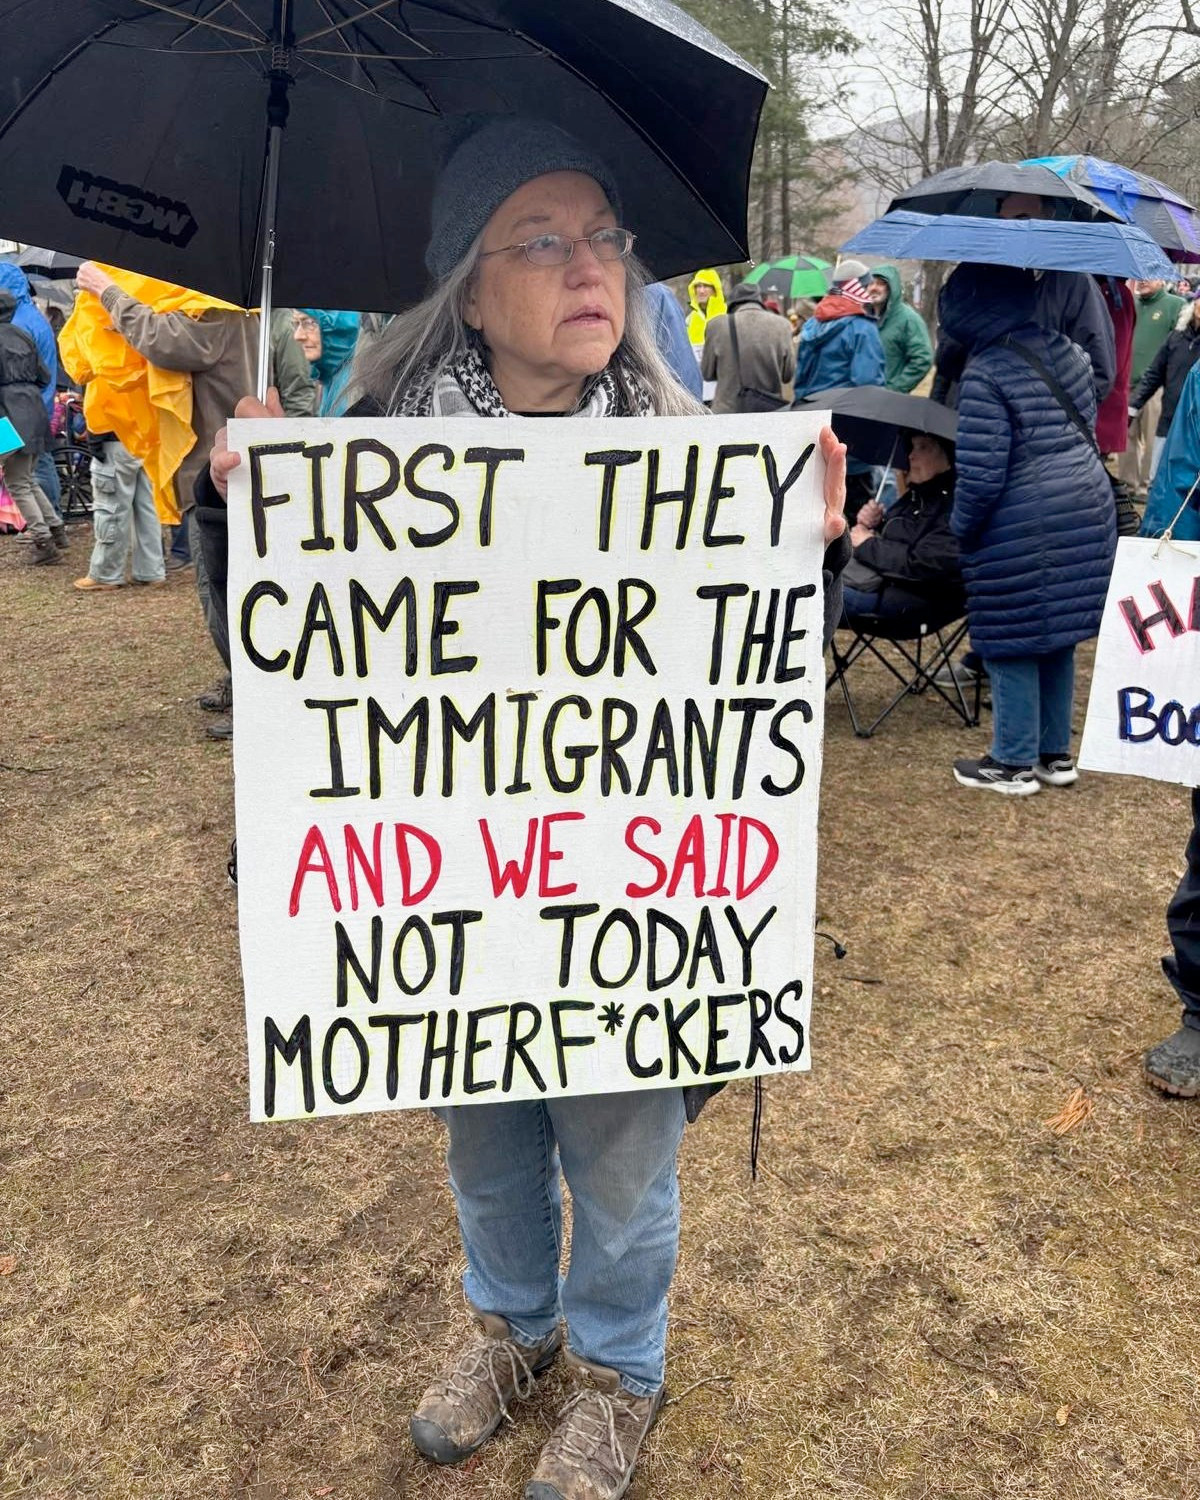 FIRST THEY
CAME FOR THE
IMMIGRANTS
AND WE SAID
NOT TODAY
MOTHERF*CKERS